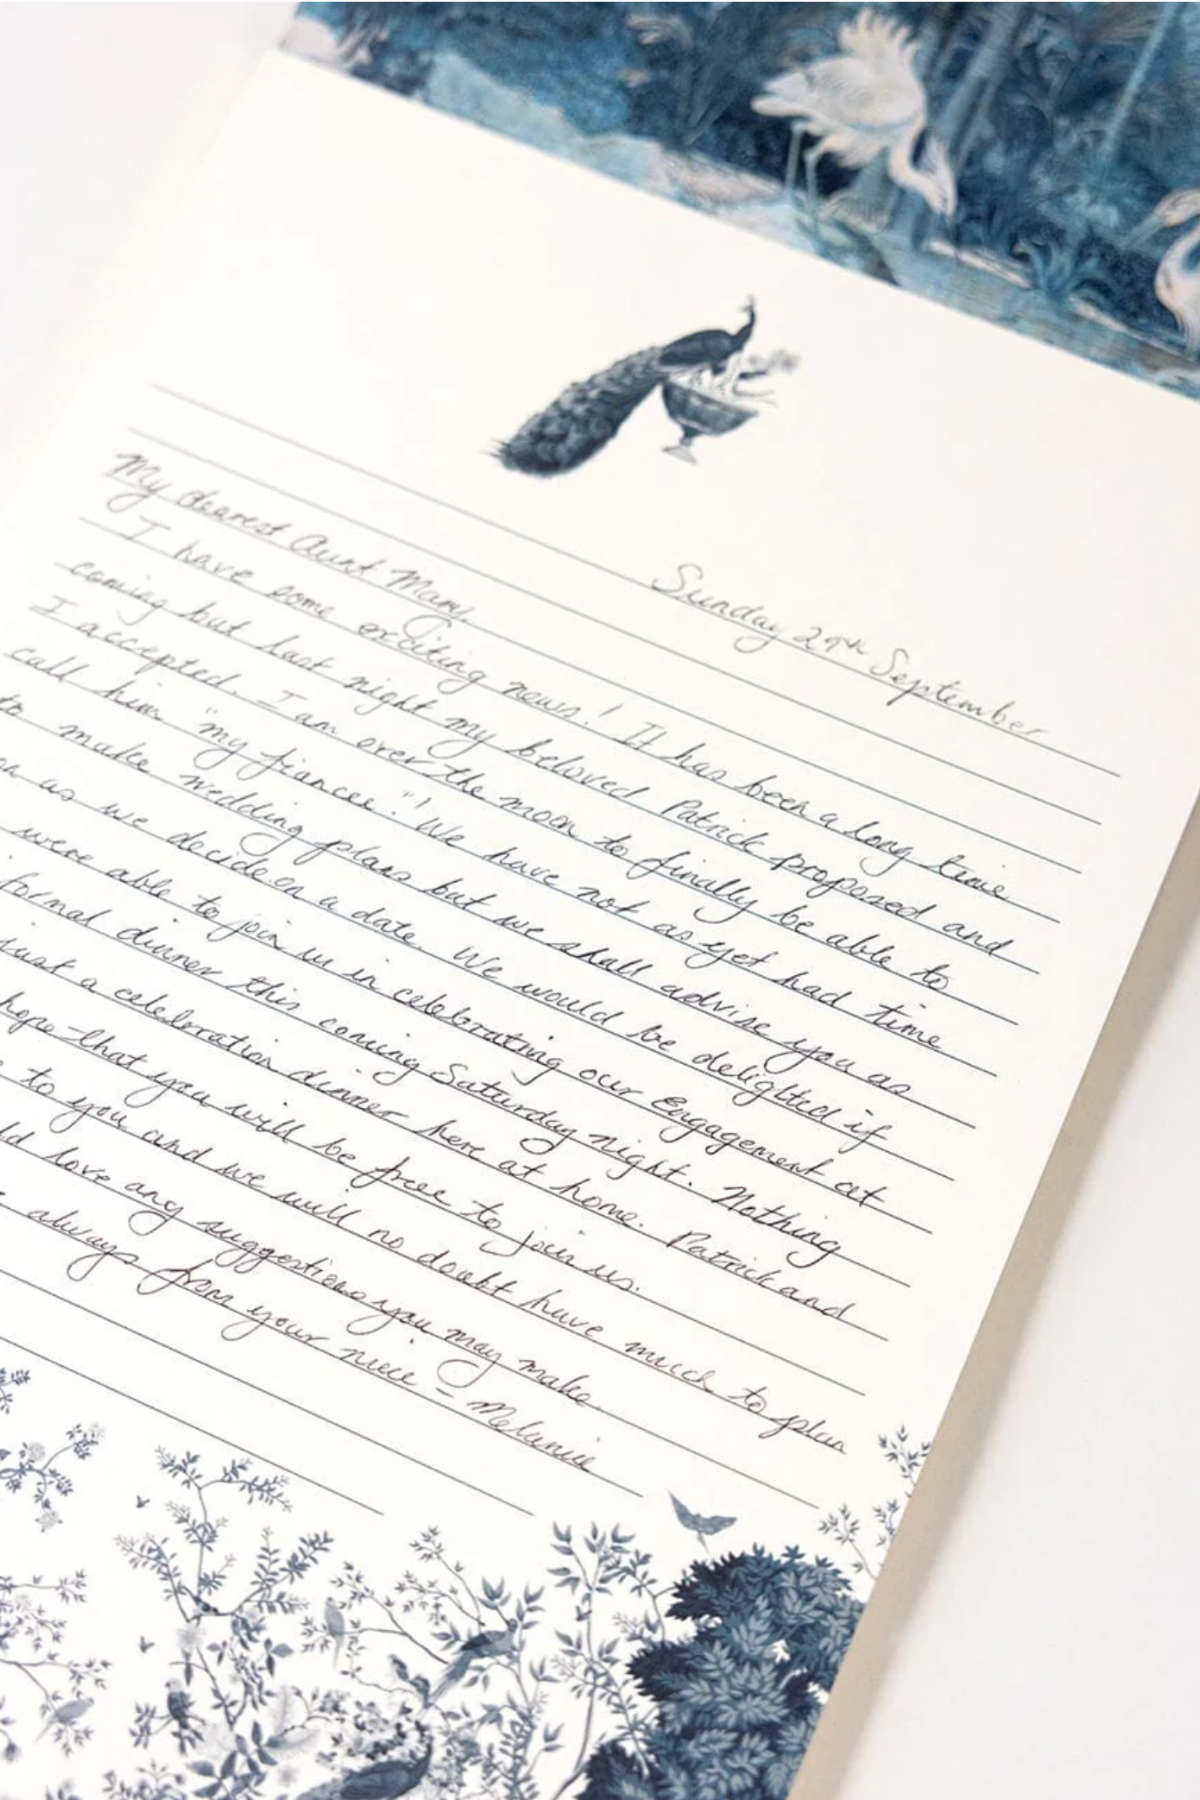 Sunday 29th September
My dearest Aunt Mary,
I have some exciting news! It has been a long time
coming but last night my beloved Patrick proposed and
I accepted. I am over the moon to finally be able to
call him "my fiancee"! We have not as yet had time
to make wedding plans but we shall advise you as
on as we decide on a date. We would be delighted if
were able to join us in celebrating our Engagement at
formal dinner this coming Saturday night. Nothing
just a celebration dinner here at home. Patrick and
hope that you will be free to join us.
to you and we will no doubt have much to plan
love any suggestions you may make.
always from your niece - Melanie